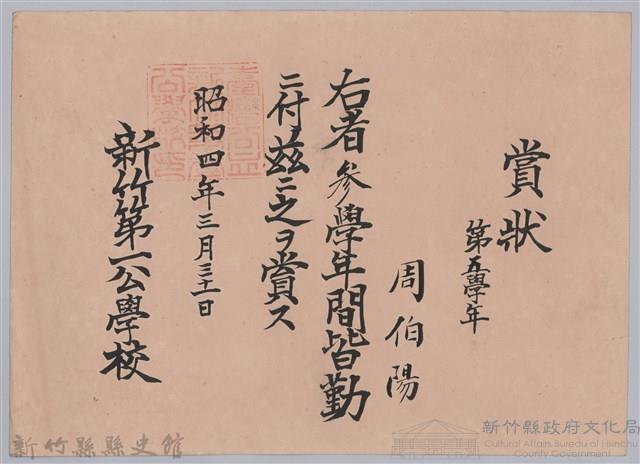 賞狀
第五學年
周伯陽
右者参學年間皆勤
ニ付キ茲ニ之ヲ賞ス
昭和四年三月三十一日
新竹第一公學校
新竹縣縣史館
新竹縣政府文化局
Cultural Affairs Bureau of Hsinchu
County Government